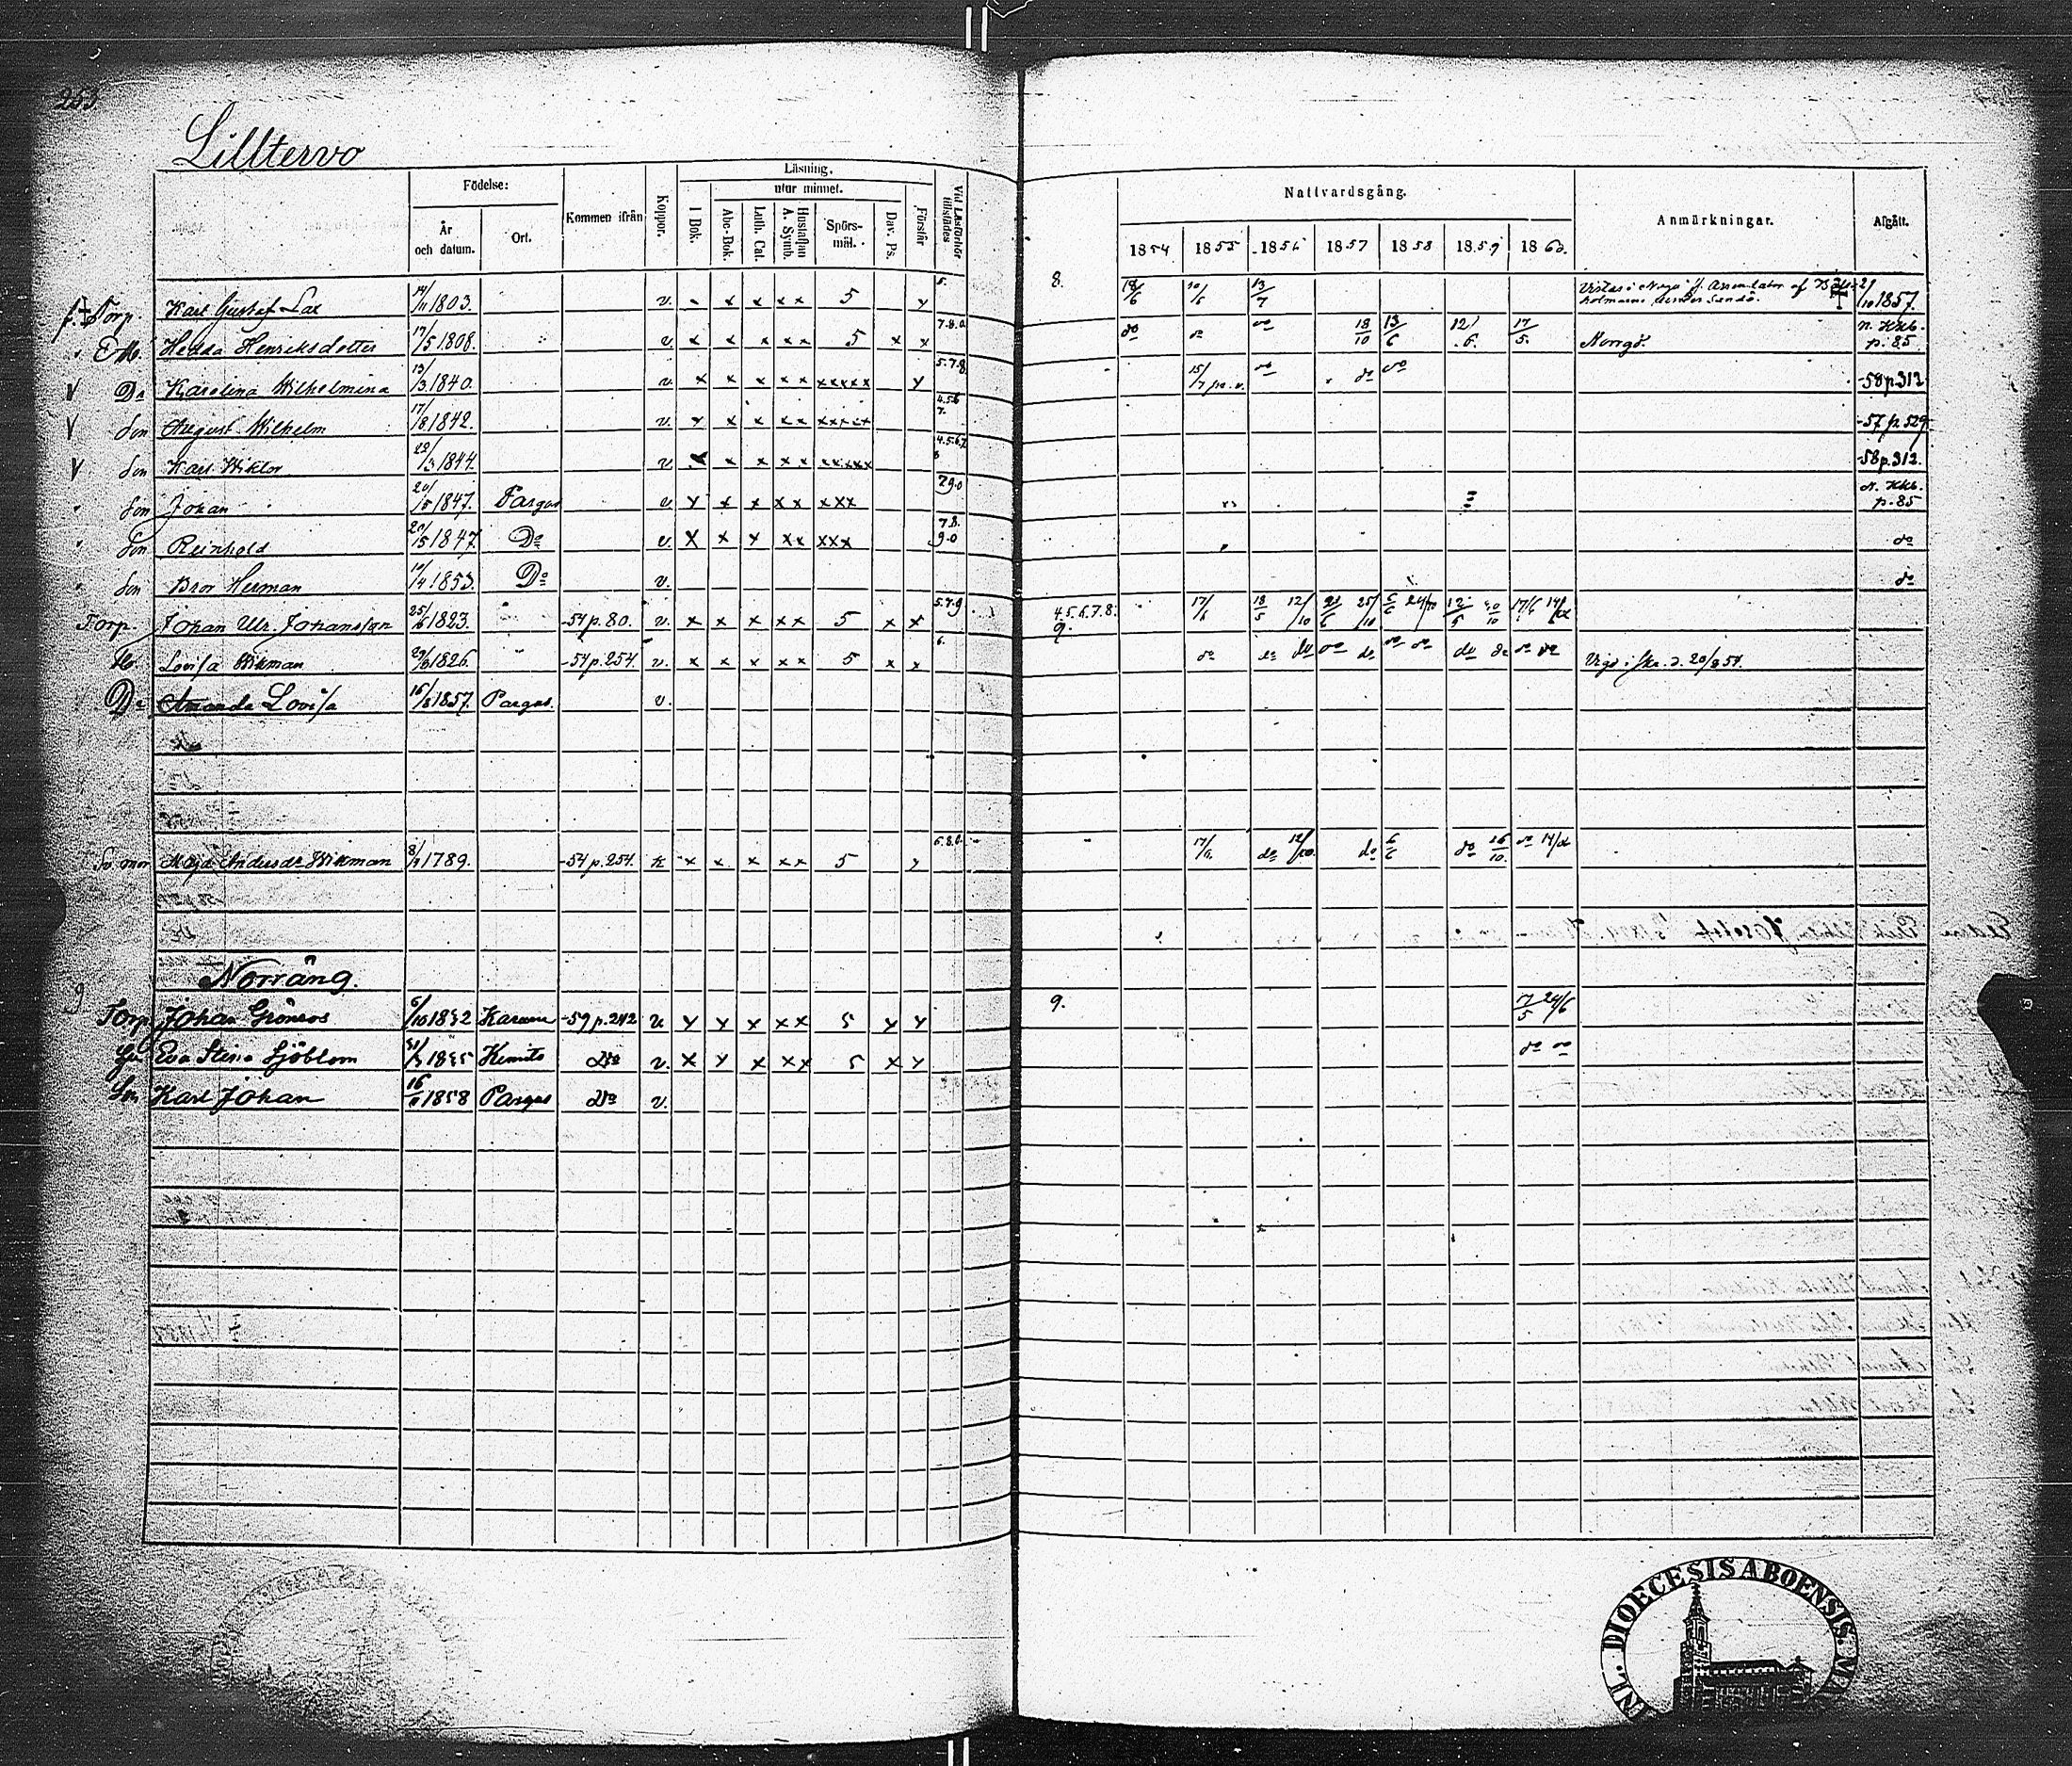 253
Lilltervo
Födelse: År och datum. Ort. Kommen ifrån Koppor. Läsning. I Bok. utur minnet. Abc-Bok. Luth. Cat. Hustaflan A. Symb. Spörsmål. Dav. Ps. Förstår Vid Läsförhör tillstädes
Nattvardsgång. 1854 1855 1856 1857 1858 1859 1860. Anmärkningar. Afgått.
Torp. Karl Gustaf Lax 14/11 1803. v. x x x x 5 x 5. 8. 18/6 10/6 13/7 1857.
Hedda Henriksdotter 17/5 1808. v. x x x x x 5 x x 7.8.0 do do do 18/10 13/6 12/6. 17/5. Norrgd. n. Kkb. p. 85
V Dr Karolina Wilhelmina 13/3 1840. v. x x x x x xxxxx x 5.7.8. 15/7 do do do -58 p. 312
V Son August Wilhelm 17/8 1842. v. x x x x x xxxxx 4.5.6 7. -57 p. 529
V Son Karl Wiktor 23/3 1844. v. x x x x xxxxx 4.5.6.7. 8 -58 p. 312.
Son Johan 20/5 1847. Pargas v x x x x x xxx 7.9.0 n. Kkb. p. 85
Son Reinhold 20/5 1847 Do v. x x x x x xxx 7.8. 9.0 do
Son Bror Herman 10/4 1853. Do v. do
Torp. Johan Ulr. Johansson 25/6 1823. -54 p. 80. v. x x x x x 5 x x 5.7.9 4.5.6.7.8. 9. 17/6 18/5 12/10 21/6 25/10 6/6 24/10 12/5 30/10 17/6 14/10
Hu. Lovisa Wikman 1826. -54 p. 254. v. x x x x x 5 x x 6. do do do do do do do do do do do Vigd i 20/8 54.
Dr Amanda Lovisa 16/8 1857. Pargas. v.
Maja Andersdr Wikman 8/3 1789. -54 p. 254. k x x x x x 5 x 6.8.0. 17/6. do 12/10. do 6/6 do 16/10. do 14/10
Norräng.
9
Torp Johan Grönros 6/10 1832 Karuna -59 p. 242 v x x x x x 5 x x 9. 17/5 24/6
Hu Eva Stina Sjöblom 31/3 1835 Kimito Do v. x x x x x 5 x x do do
Son Karl Johan 16/11 1858 Pargas Do v.
DIOECESIS ABOENSIS.